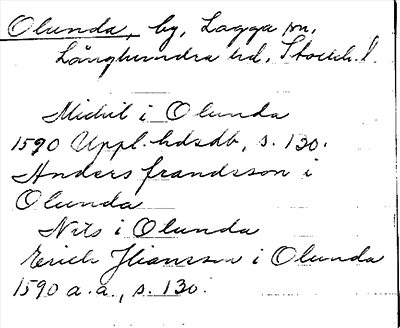 Olunda, by, Lagga sn,
Långhundra hd, Stockh. l.
Michil i Olunda
1590 Uppl. hdsdb, s. 130.
Anders frandsson i
Olunda
Nils i Olunda
Erich i Olunda
1590 a.a., s. 130.